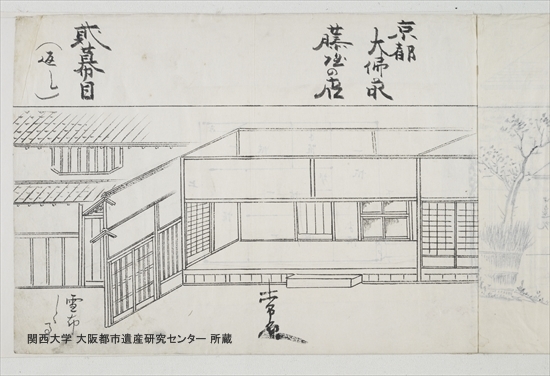 京都
大佛前
藤屋の店
貮幕目
(返し)
常店
雪布
関西大学 大阪都市遺産研究センター 所蔵